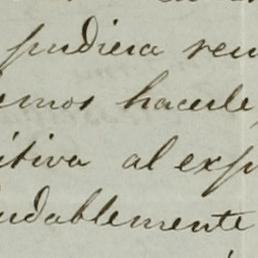 pudiera reu
emos hacerle
itiva al exp
udablemente